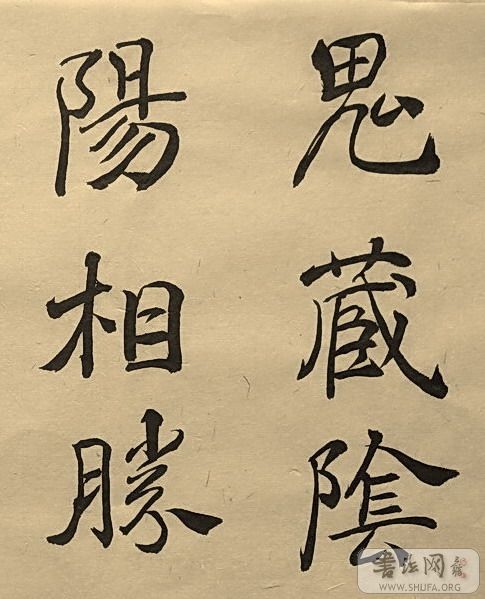 鬼藏陰
陽相勝
書法网
WWW.SHUFA.ORG